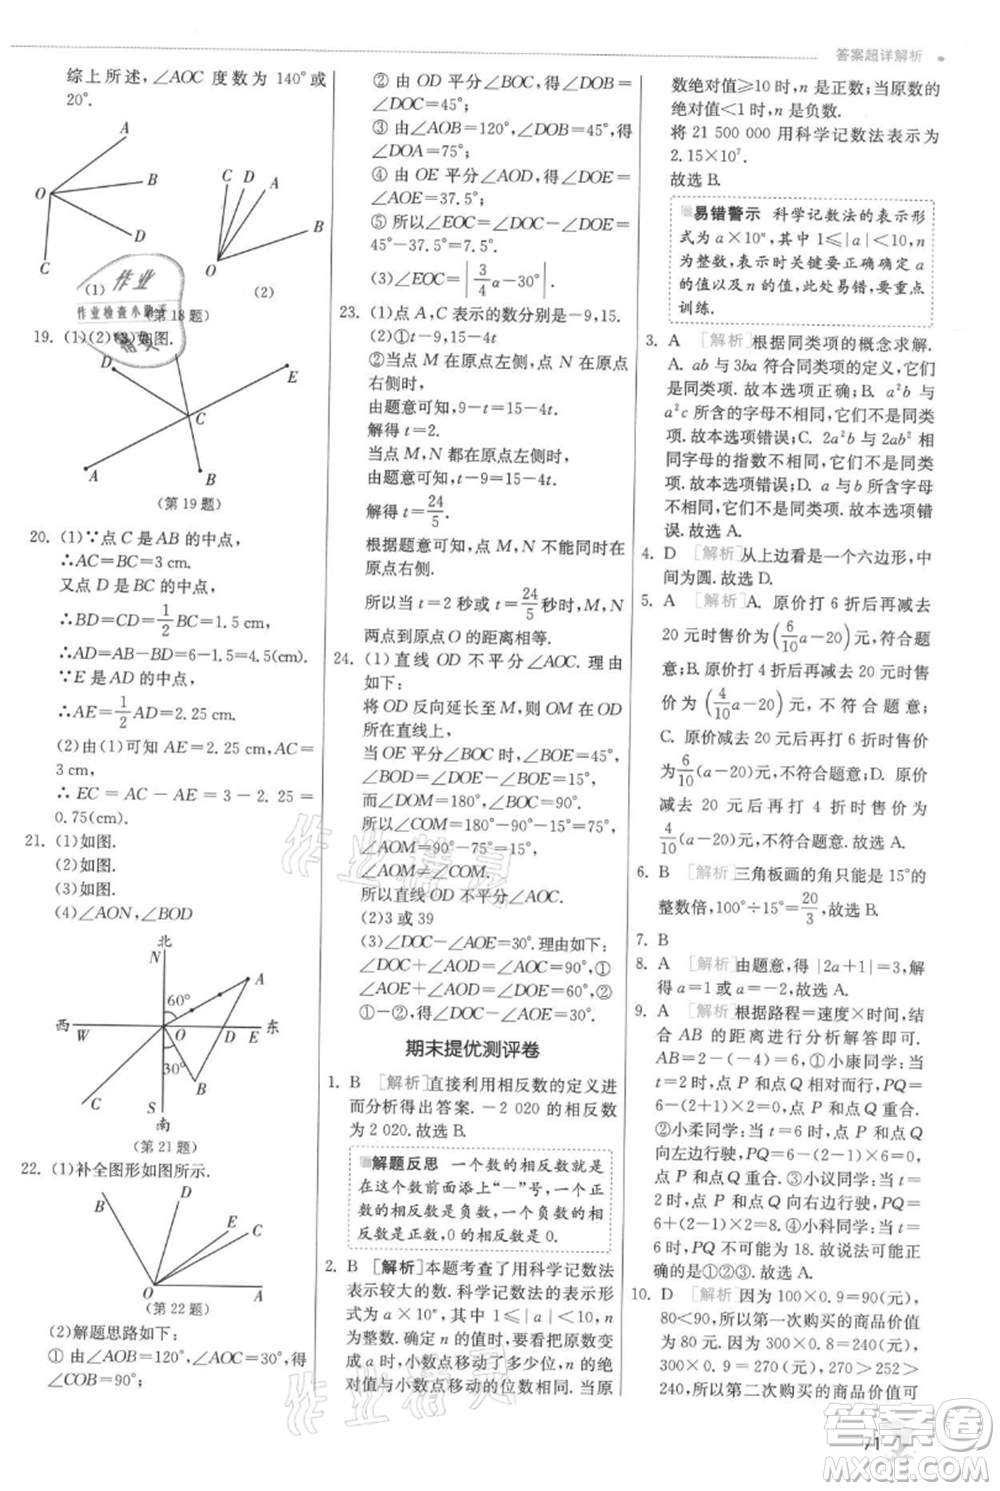 答案超详解析
综上所述,∠AOC 度数为 140°或
20°.
A
B
O
D
C
(1)
C
D
A
B
O
(2)
(第18题)
19. (1)(2)(3)如图.
D
E
C
A
B
(第 19 题)
20. (1)∵点 C 是 AB 的中点,
∴AC=BC=3 cm.
又点 D 是 BC 的中点,
∴BD=CD=1/2BC=1.5 cm,
∴AD=AB-BD=6-1.5=4.5(cm).
∵E 是 AD 的中点,
∴AE=1/2AD=2.25 cm.
(2)由(1)可知 AE=2.25 cm,AC=
3 cm,
∴ EC = AC - AE = 3 - 2.25 =
0.75(cm).
21. (1)如图.
(2)如图.
(3)如图.
(4)∠AON,∠BOD
北
N
A
60°
西
W
O
D
E
东
30°
B
C
S
南
(第 21 题)
22. (1)补全图形如图所示.
B
D
E
C
O
A
(第 22 题)
(2)解题思路如下:
① 由∠AOB=120°,∠AOC=30°,得
∠COB=90°;
② 由 OD 平分∠BOC,得∠BOD=
∠DOC=45°;
③ 由∠AOB=120°,∠DOB=45°,得
∠DOA=75°;
④ 由 OE 平分∠AOD,得∠DOE=
∠AOE=37.5°;
⑤ 所以∠EOC=∠DOC-∠DOE=
45°-37.5°=7.5°.
(3)∠EOC=|3/4α-30°|
23. (1)点 A,C 表示的数分别是-9,15.
(2)①9-t 15-4t
②当点 M、点 N 在原点左侧,点 N 在原点
右侧时,
由题意可知,9-t=15-4t.
解得 t=2.
当点 M、点 N 在原点左侧时,
由题意可知,t-9=15-4t.
解得 t=24/5.
根据题意可知,点 M,N 不能同时在
原点右侧.
所以当 t=2 秒或 t=24/5 秒时,M,N
两点到原点 O 的距离相等.
24. (1)直线 OD 不平分∠AOC. 理由
如下:
将 OD 反向延长至 M,则 OM 在 OD
所在直线上,
当 OE 平分∠BOC 时,∠BOE=45°,
∠BOD=∠DOE-∠BOE=15°,
而∠DOM=180°,∠BOC=90°.
所以∠COM=180°-90°-15°=75°,
∠AOM=90°-∠COM=15°,
∠AOM≠∠COM.
所以直线 OD 不平分∠AOC.
(2)3 或 39
(3)∠DOC-∠AOE=30°. 理由如下:
∠DOC+∠AOD=∠AOC=90°,①
∠AOE+∠AOD=∠DOE=60°,②
①-②得,∠DOC-∠AOE=30°.
期末提优测评卷
1. B [解析]直接利用相反数的定义进
而分析得出答案. -2 020 的相反数
为 2 020. 故选 B.
解题反思 一个数的相反数就是
在这个数前面添上“-”号,一个正
数的相反数是负数,一个负数的相
反数是正数,0 的相反数是 0.
2. B [解析]本题考查了用科学记数法
表示较大的数. 科学记数法的表示
形式为 a×10ⁿ,其中 1≤|a|<10,n
为整数. 确定 n 的值时,要看把原数变
成 a 时,小数点移动了多少位,n 的绝
对值与小数点移动的位数相同. 当原
数绝对值≥10 时,n 是正数;当原数的
绝对值<1 时,n 是负数.
将 21 500 000 用科学记数法表示为
2.15×10⁷.
故选 B.
易错警示 科学记数法的表示形
式为 a×10ⁿ,其中 1≤|a|<10,n
为整数,表示时关键要正确确定 a
的值以及 n 的值,此处易错,要重点
训练.
3. A [解析]根据同类项的概念求解.
A. ab 与 3ba 符合同类项的定义,它们
是同类项. 故本选项正确;B. a²b 与
a²c 所含的字母不相同,它们不是同类
项. 故本选项错误;C. 2a²b 与 2ab² 相
同字母的指数不相同,它们不是同类
项. 故本选项错误;D. 它们所含的字
母不相同,它们不是同类项. 故本选项错
误. 故选 A.
4. D [解析]从上边看是一个六边形,中
间为圆. 故选 D.
5. A [解析]A. 原价打 6 折后再减去
20 元时售价为(6/10a-20)元,符合题
意;B. 原价打 4 折后再减去 20 元时售
价为(4/10a-20)元,不符合题意;
C. 原价减去 20 元后再打 6 折时售价
为6/10(a-20)元,不符合题意;D. 原价
减去 20 元后再打 4 折时售价为
4/10(a-20)元,不符合题意. 故选 A.
6. B [解析]三角板画的角只能是 15°的
整数倍,100°÷15°=20/3,故选 B.
7. B
8. A [解析]由题意,得|2a+1|=3,解
得 a=1 或 a=-2,故选 A.
9. A [解析]根据路程=速度×时间,结
合 AB 的距离进行分析解答即可.
AB=2-(-4)=6. ①小康同学:当
t=2 时,点 P 和点 Q 相向而行,PQ=
6-(2+1)×2=0,点 P 和点 Q 重合.
②小柔同学:当 t=6 时,点 P 和点 Q
向左边行驶,PQ=6-(2-1)×6=0,
点 P 和点 Q 重合. ③小议同学:当 t=
2 时,点 P 和点 Q 向右边行驶,PQ=
6+(2-1)×2=8. ④小科同学:当 t=
6 时,PQ 不可能为 18. 故说法可能正
确的是①②③. 故选 A.
10. D [解析]因为 100×0.9=90(元),
80<90,所以第一次购买的商品价值
为 80 元. 300×0.8=240(元),
300×0.9=270(元),270>252>
240,所以第二次购买的商品价值可
71
作业
作业检查小助手
精灵
作业精灵
作业精灵
答案圈
MXQE.COM